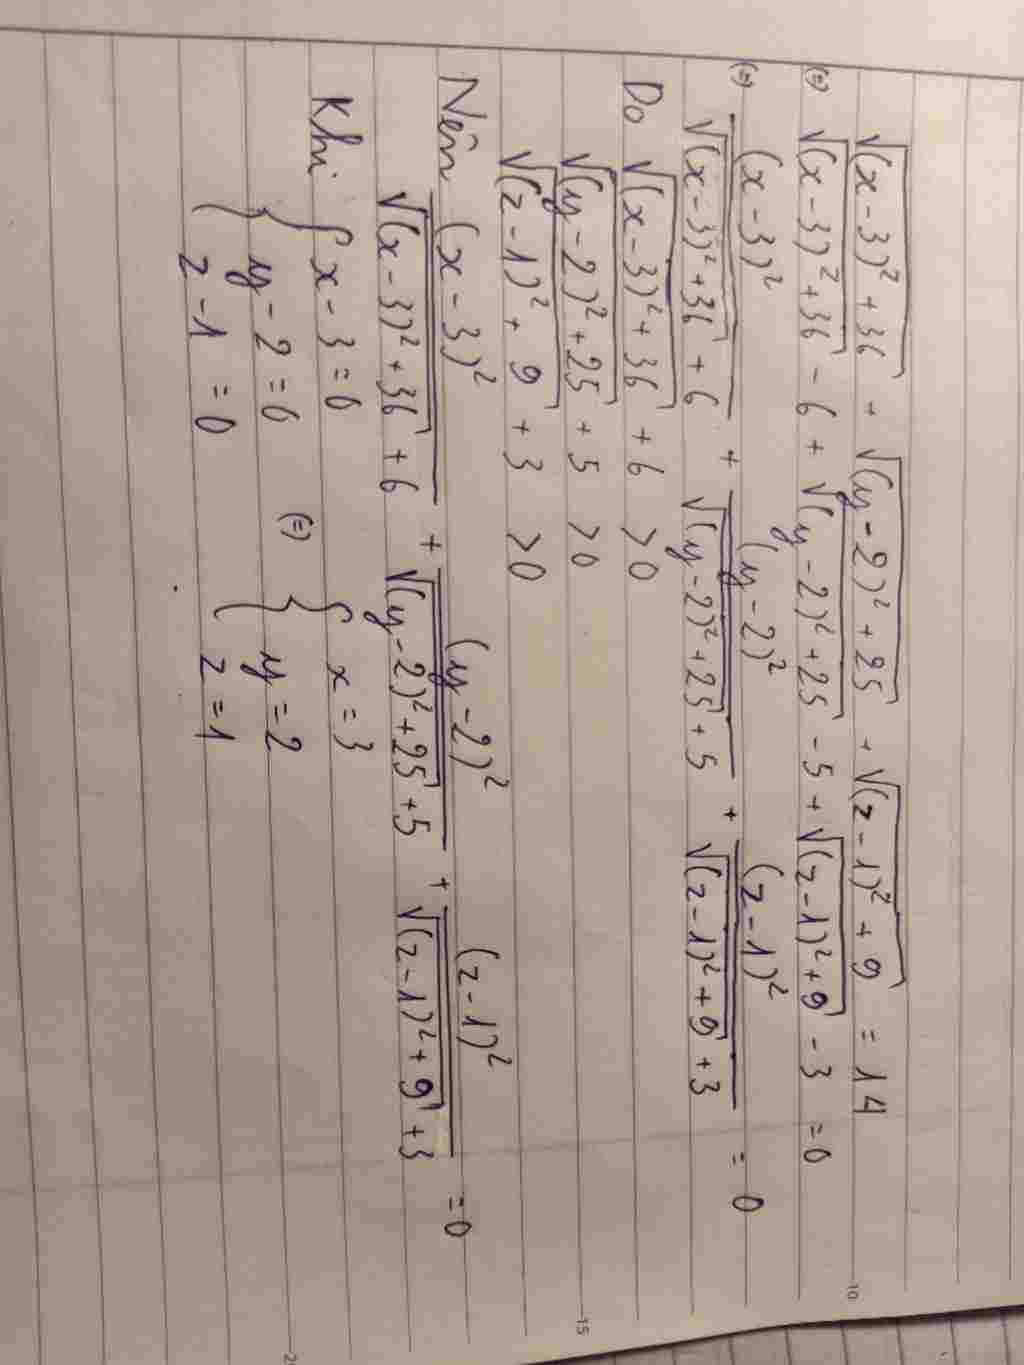 √(x-3)²+36 + √(y-2)²+25 + √(z-1)²+9 = 14
(=) √(x-3)²+36 - 6 + √(y-2)²+25 - 5 + √(z-1)²+9 - 3 = 0
(=) (x-3)² / √(x-3)²+36 + 6 + (y-2)² / √(y-2)²+25 + 5 + (z-1)² / √(z-1)²+9 + 3 = 0
Do √(x-3)²+36 + 6 > 0
√(y-2)²+25 + 5 > 0
√(z-1)²+9 + 3 > 0
Nên (x-3)² / √(x-3)²+36 + 6 + (y-2)² / √(y-2)²+25 + 5 + (z-1)² / √(z-1)²+9 + 3 = 0
Khi { x-3=0 (=) { x=3
y-2=0 y=2
z-1=0 z=1
10
15
20